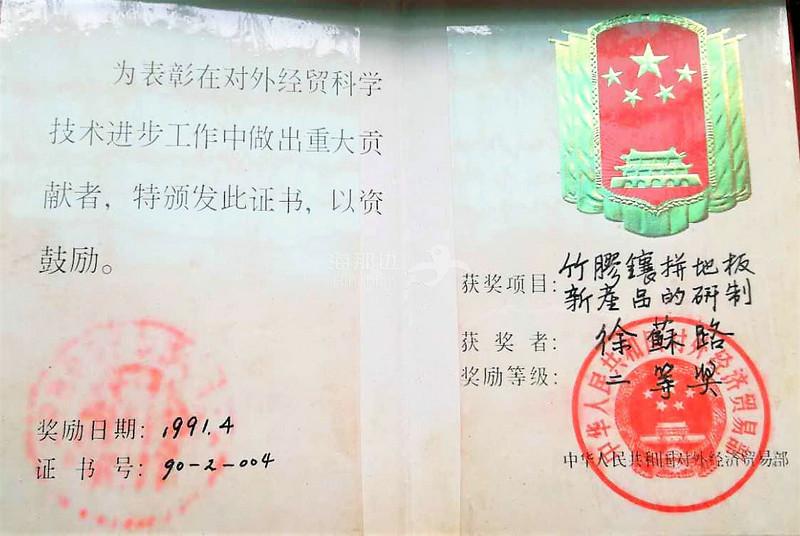 为表彰在对外经贸科学
技术进步工作中做出重大贡
献者，特颁发此证书，以资
鼓励。
奖励日期：1991.4
证书号：90-2-004
获奖项目：竹膠鑲拼地板
新產品的研制
获奖者：徐蘇路
奖励等级：二等奖
中华人民共和国对外经济贸易部
中华人民共和国对外经济贸易部
海那边